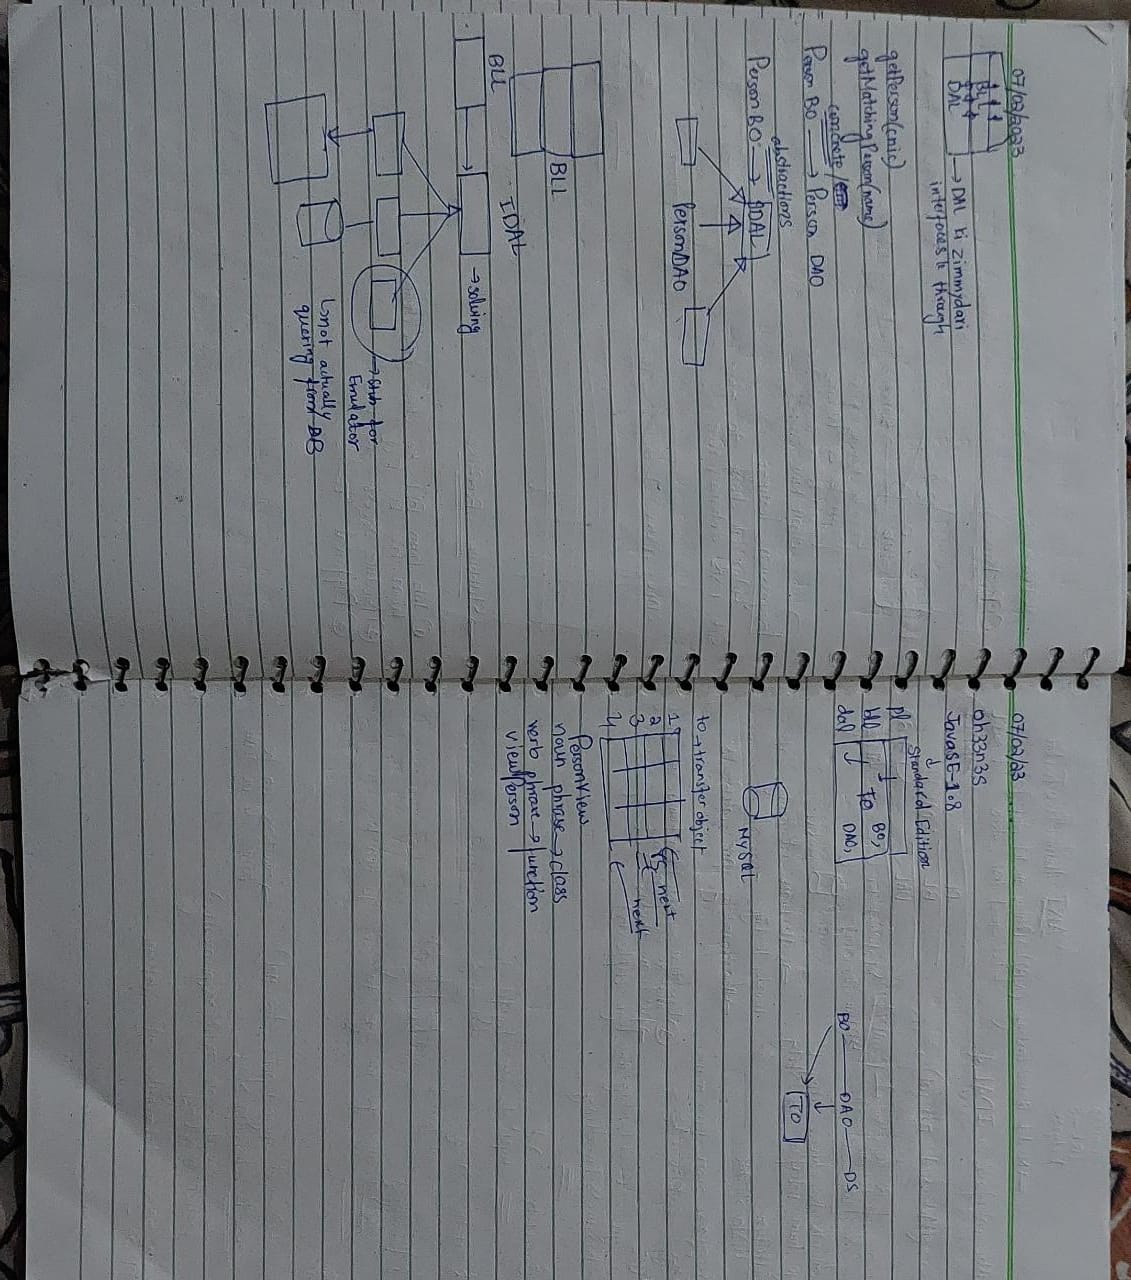 07/02/2023
BLL
DAL
→ DAL ki zimmydari
interfaces k through
getPerson(cnic)
getMatchingPerson(name)
concrete/
Person BO → Person DAO
abstractions
Person BO → IDAL
PersonDAO
BLL
BLL
IDAL
→ solving
→ stub for
Emulator
↳ not actually
quering from DB
07/02/23
6h33n3s
JavaSE-1.8
↓
Standard Edition
pl
bll BO,
TO
dal DAO,
BO DAO DS
TO
MySQL
to → transfer object
1
2
3
4
next
next
PersonView
noun phrase → class
verb phrase → function
viewPerson